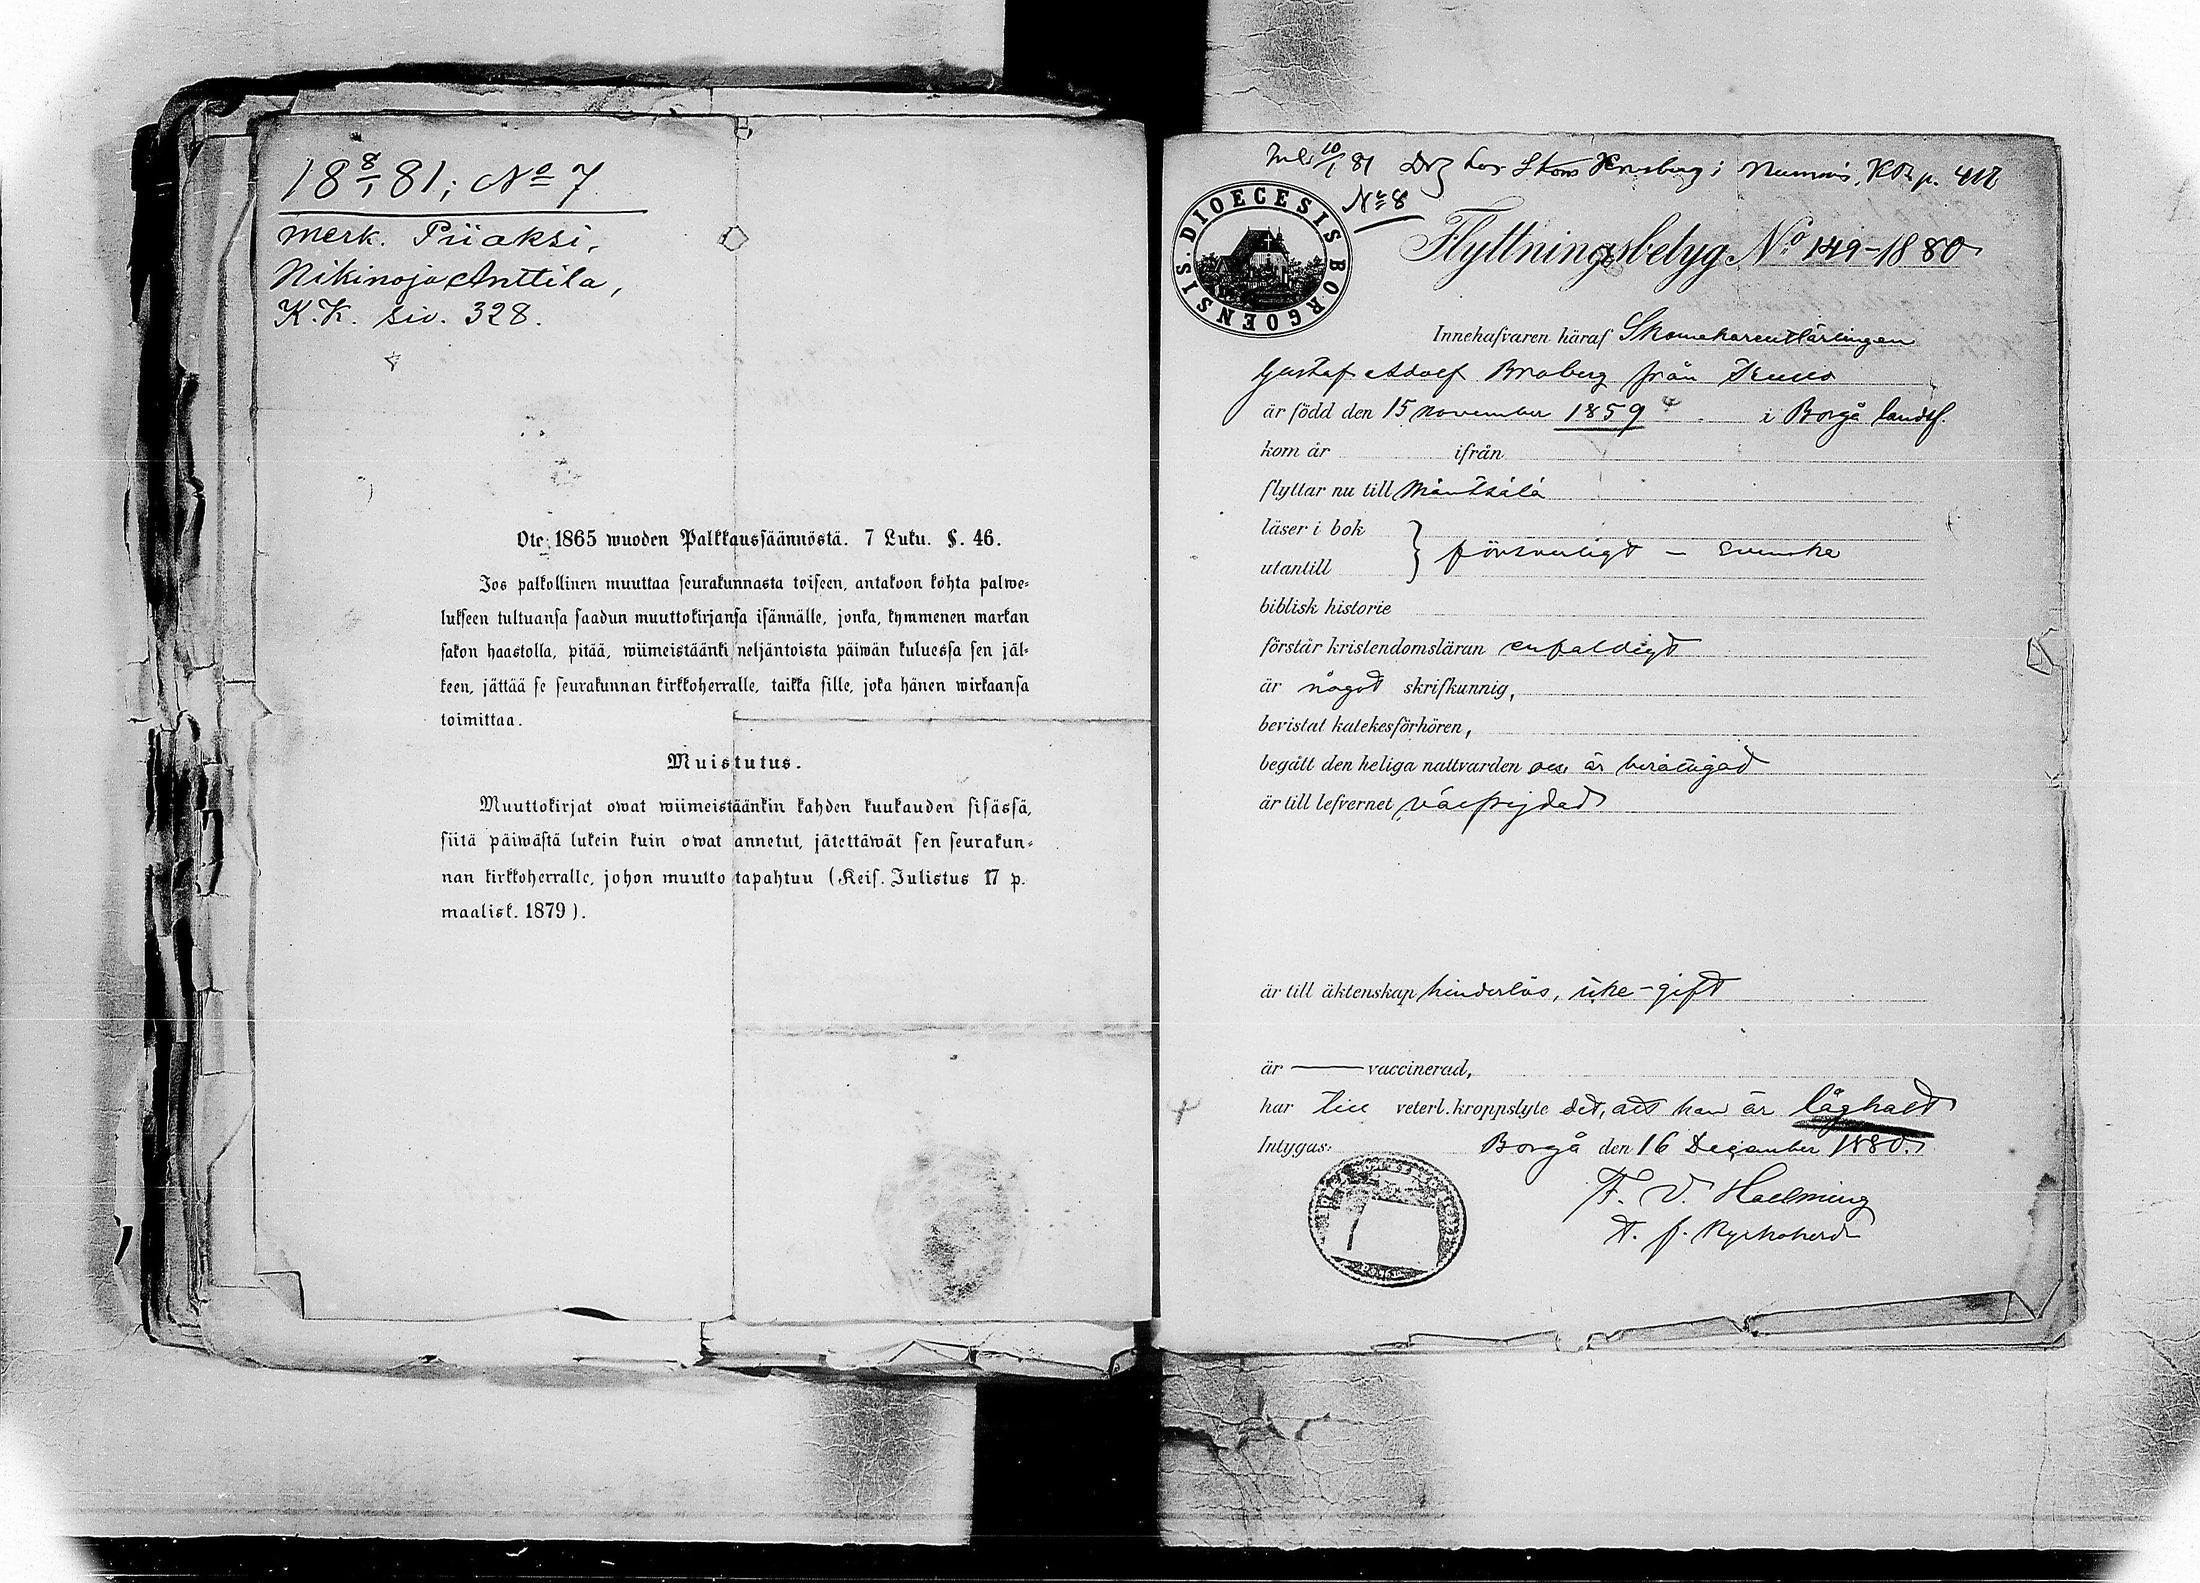 18 8/1 81; No 7
merk. Piiaksi,
Nikinoja Anttila,
K.K. siv. 328.
Ote 1865 wuoden Palkkaussäännöstä. 7 Luku. §. 46.
Jos palkollinen muuttaa seurakunnasta toiseen, antakoon kohta palwe-
lukseen tultuansa saadun muuttokirjansa isännälle, jonka, kymmenen markan
sakon haastolla, pitää, wiimeistäänki neljäntoista päiwän kuluessa sen jäl-
keen, jättää se seurakunnan kirkkoherralle, taikka sille, joka hänen wirkaansa
toimittaa.
Muistutus.
Muuttokirjat owat wiimeistäänkin kahden kuukauden sisässä,
siitä päiwästä lukein kuin owat annetut, jätettäwät sen seurakun-
nan kirkkoherralle, johon muutto tapahtuu (Keis. Julistus 17 p.
maalisk. 1879).
10/1 81 hos Skom i Numnis, KB p. 417
No 8
SIS. DIOECESIS BORGOENSIS
Flyttningsbetyg No 149-1880
Innehafvaren häraf Skomakarentlärlingen
Gustaf Adolf Broberg från
är född den 15 november 1859 i Borgå landsf.
kom år ifrån
flyttar nu till Mäntsälä
läser i bok
utantill } försvarligt - svenska
biblisk historie
förstår kristendomsläran enfaldigt
är något skrifkunnig,
bevistat katekesförhören,
begått den heliga nattvarden och är berättigad
är till lefvernet välfrejdad
är till äktenskap hinderlös, icke-gift
är — vaccinerad,
har till veterl. kroppslyte det, att han är låghalt
Intygas: Borgå den 16 December 1880.
F. V.
t. f. Kyrkoherde